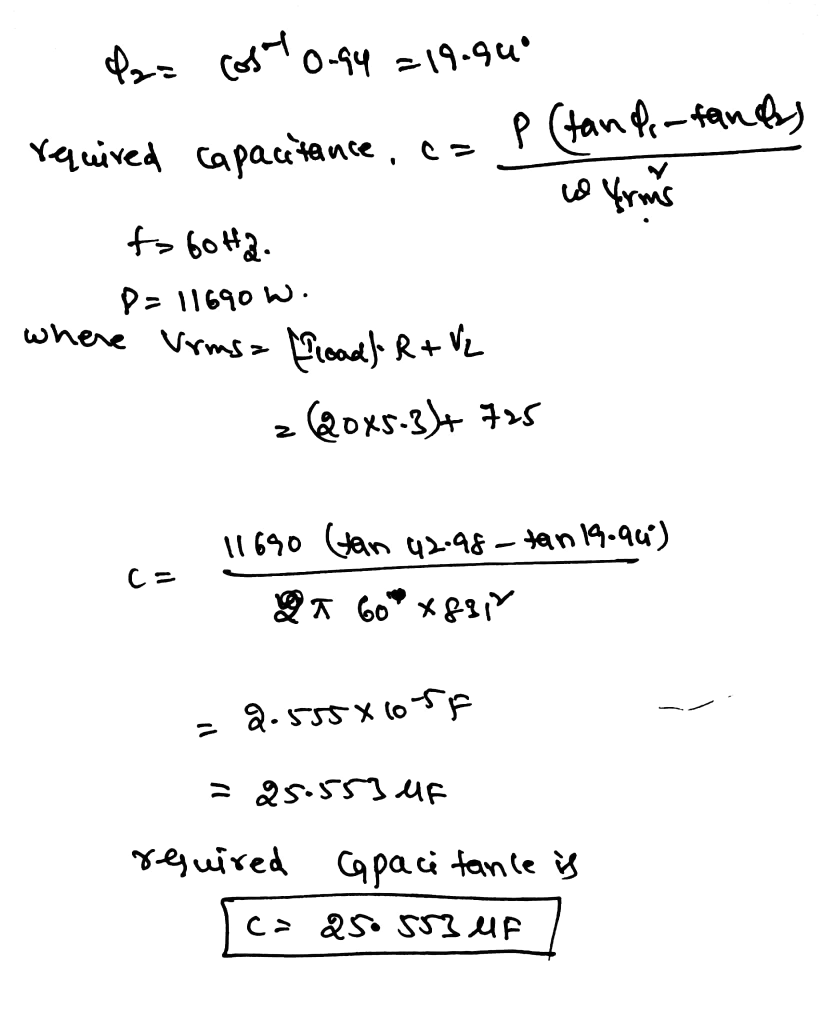 φ₂ = cos⁻¹ 0.94 = 19.94°
required capacitance, c = P (tan φ₁ - tan φ₂) / ω Vrms²
f = 60 Hz.
P = 11690 W.
where Vrms = [Iload]. R + VL
= (20x5.3)+ 725
C = 11690 (tan 42.98 - tan 19.94°) / 2π 60 x 831²
= 2.555 x 10⁻⁵ F
= 25.553 μF
required Capacitance is
C = 25.553 μF